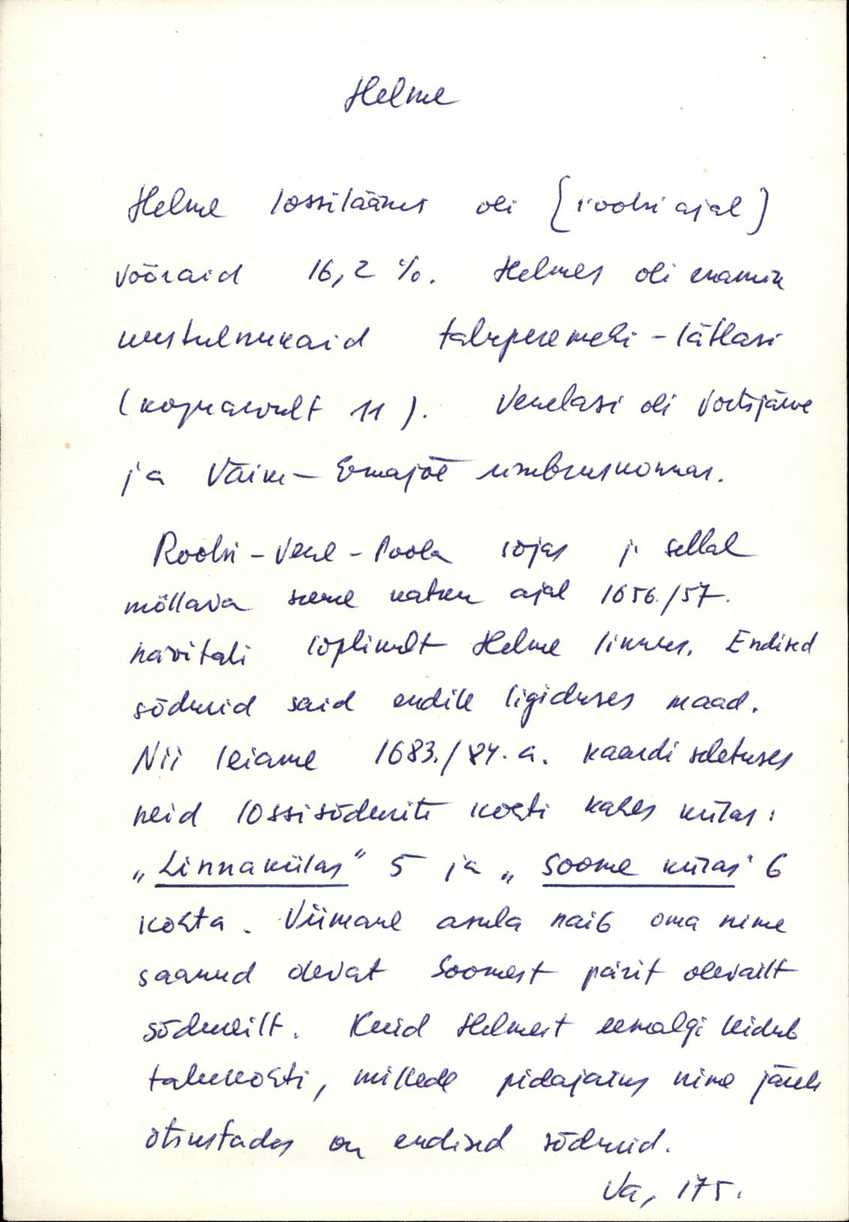 Helme
Helme lossiläänis oli [rootsi ajal]
võõraid 16,2 %. Helmes oli enamik
uustulnukaid taluperemehi-lätlasi
(kogusummalt 11). Venelasi oli Võrtsjärve
ja Väike-Emajõe ümbruskonnas.
Rootsi-Vene-Poola sõjas j. sellal
möllava suure katku ajal 1656./57.
hävitati lõplikult Helme linnus. Endised
sõdurid said endile ligiduses maad.
Nii leiame 1683./84. a. kaardi seletuses
neid lossisõdurite kohti kahes külas:
„Linnakülas" 5 ja „Soome külas" 6
kohta. Viimane asula näib oma nime
saanud olevat Soomest pärit olevailt
sõdureilt. Kuid Helmest eemalgi leidub
talukohti, millede pidajaiks nime järele
otsustades on endised sõdurid.
Va, 175.